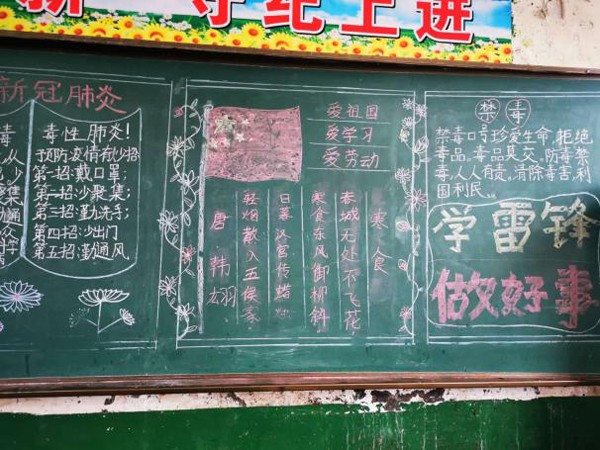 守纪上进
新冠肺炎
毒性肺炎!
预防疫情有妙招
第一招:戴口罩;
第二招:少聚集;
第三招:勤洗手;
第四招:少出门
第五招:勤通风
爱祖国
爱学习
爱劳动
寒食
春城无处不飞花
寒食东风御柳斜
日暮汉宫传蜡
轻烟散入五侯家
唐·韩翃
禁毒
禁毒口号珍爱生命,拒绝
毒品。毒品莫交。防毒禁
毒,人人有责。清除毒害,利
国利民。
学雷锋
做好事